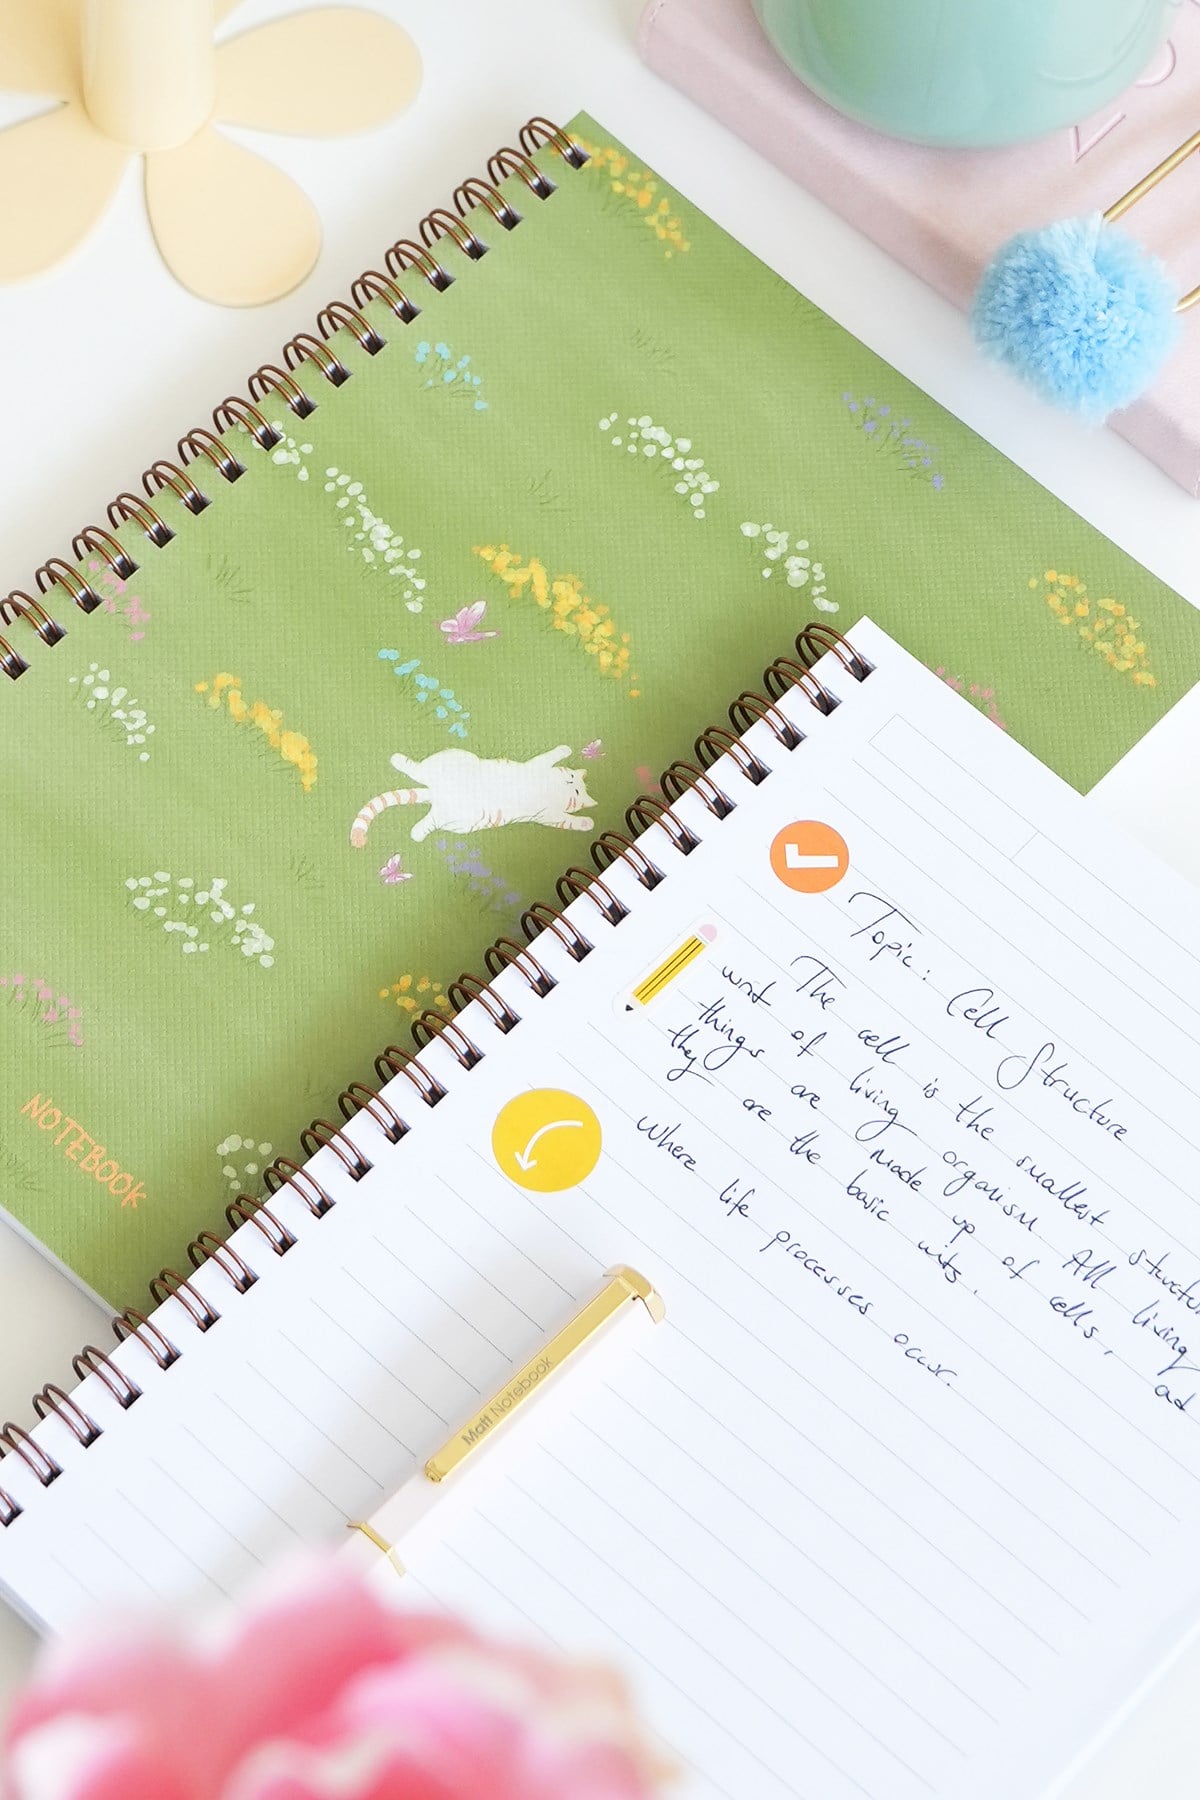 NOTEBOOK
Topic: Cell Structure
The cell is the smallest structu
unit of living organism All living
things are made up of cells, and
they are the basic units.
where life processes occur.
Matt Notebook